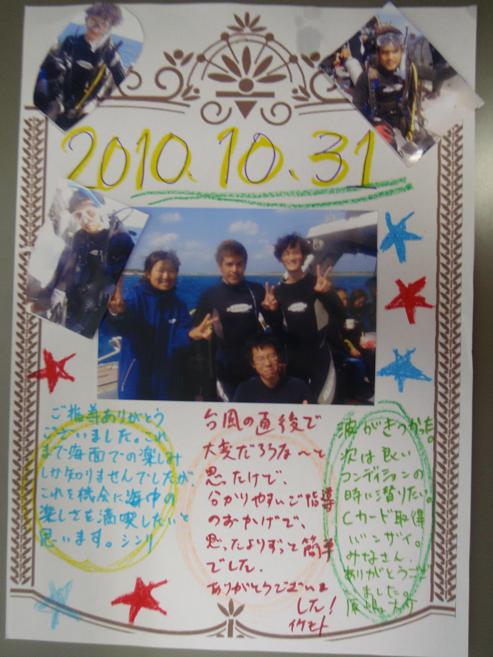 2010.10.31
ご指導ありがとう
ございました。これ
まで海面での楽しみ
しか知りませんでしたが
これを機会に海中の
楽しさを満喫したいと
思います。シンリ
台風の直後で
大変だろうな〜と
思ったけど、
分かりやすいご指導
のおかげで、
思ったよりずっと簡単
でした。
ありがとうございま
した!
イケモト
波がきつかった。
次は良い
コンディションの
時に潜りたい。
Cカード取得
バンザイ。
みなさん、
ありがとうござ
いました。